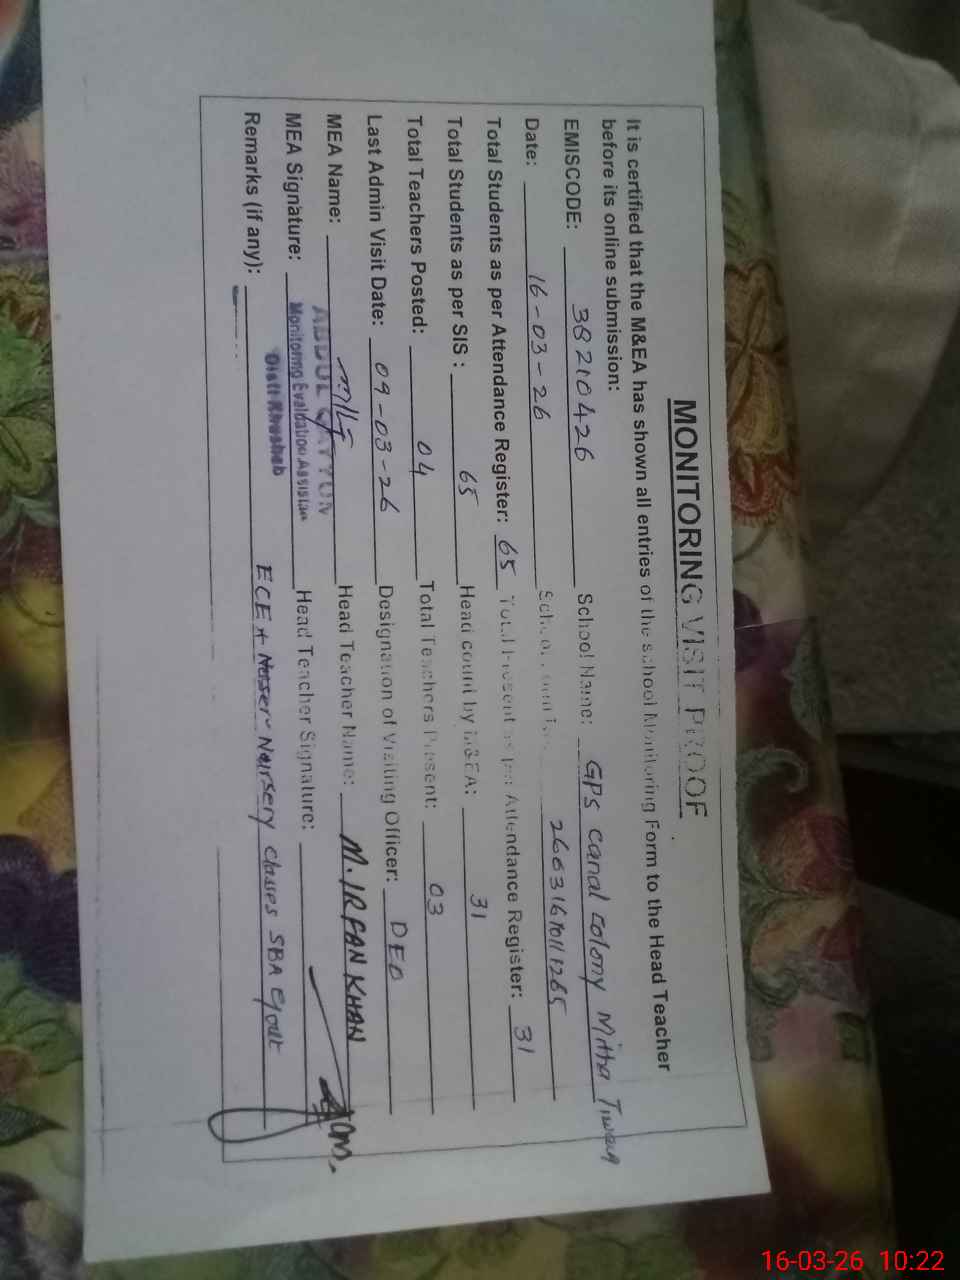 MONITORING VISIT PROOF
It is certified that the M&EA has shown all entries of the school Monitoring Form to the Head Teacher
before its online submission:
EMISCODE: 38210426 School Name: GPS canal colony Mitha Tiwana
Date: 16-03-26
Total Students as per Attendance Register: 65 Total Present as per Attendance Register: 31
Total Students as per SIS: 65 Head count by M&EA: 31
Total Teachers Posted: 04 Total Teachers Present: 03
Last Admin Visit Date: 09-03-26 Designation of Visiting Officer: DEO
MEA Name: ABDUL QAYYUM Head Teacher Name: M. IRFAN KHAN
MEA Signature: Monitoring Evaluation Assistan Head Teacher Signature:
Distt Khushab
Remarks (if any): ECE + Nursery classes SBA
16-03-26 10:22